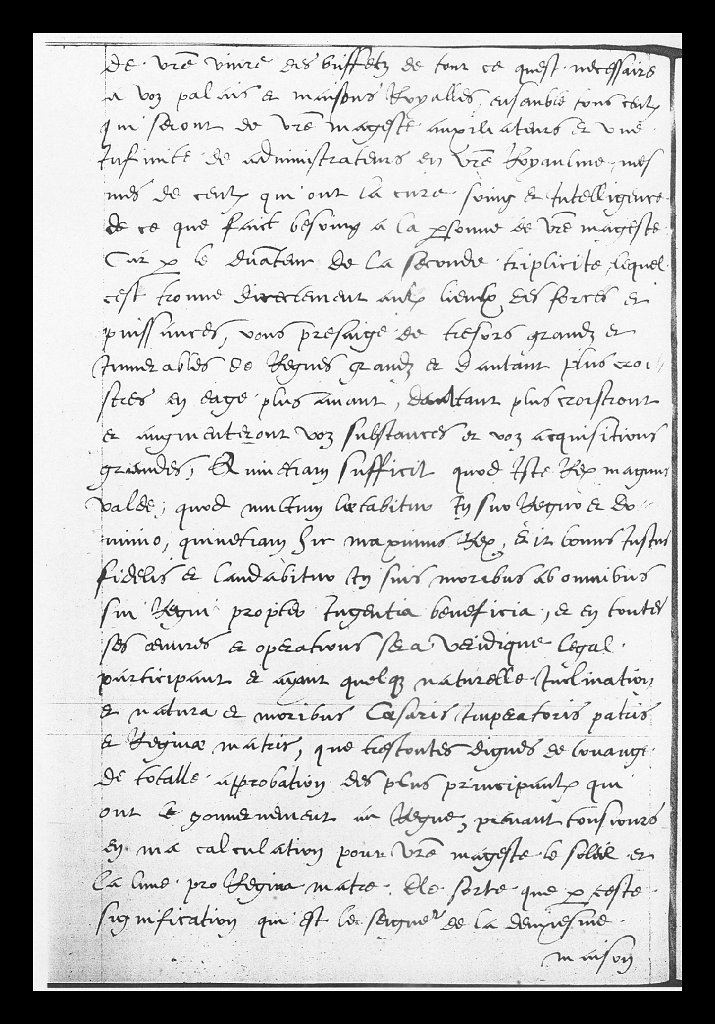 de vre vivre des buffetz de tout ce quest necessaire
a voz palais et maisons Royalles, ensemble tous ceulx
qui seront de vre mageste auxiliateurs et une
Infinite de administrateurs en vre Royaulme, mes
mes de ceulx qui ont la cure soing et Intelligence
de ce que faict besoing a la psonne de vre mageste
Car p le duateur de la seconde triplicite, lequel
cest trouue directement aulx lieulx des forces et
puissances, vous presaige de tresors grandz et
Innerables de Regnes grandz et dautant plus croi-
stres en eage plus avant, daultant plus croistront
et augmenteront voz substances et voz acquisitions
grandes, Quinetiam sufficit quod Iste Rex magnus
valde, quod multum lætabitur In suo Regno et do-
minio, quinetiam hic maximus Rex, erit bonus Iustus
fidelis et laudabitur In suis moribus ab omnibus
sui Regni propter Ingentia beneficia, et en toutes
ses œuvres et operations sera veridique legal
participant et ayant quelq naturelle Inclination
et natura et moribus Cæsaris Imperatoris patris
et Reginæ matris, que trestoutes dignes de louange
de totalle approbation des plus principaulx qui
ont le gouuernement au Regne, prenant tousiours
en ma calculation pour vre mageste le soleil et
la lune pro Regina matre. De sorte que p ceste
signification qui est le seigneʳ de la deuxiesme
maison